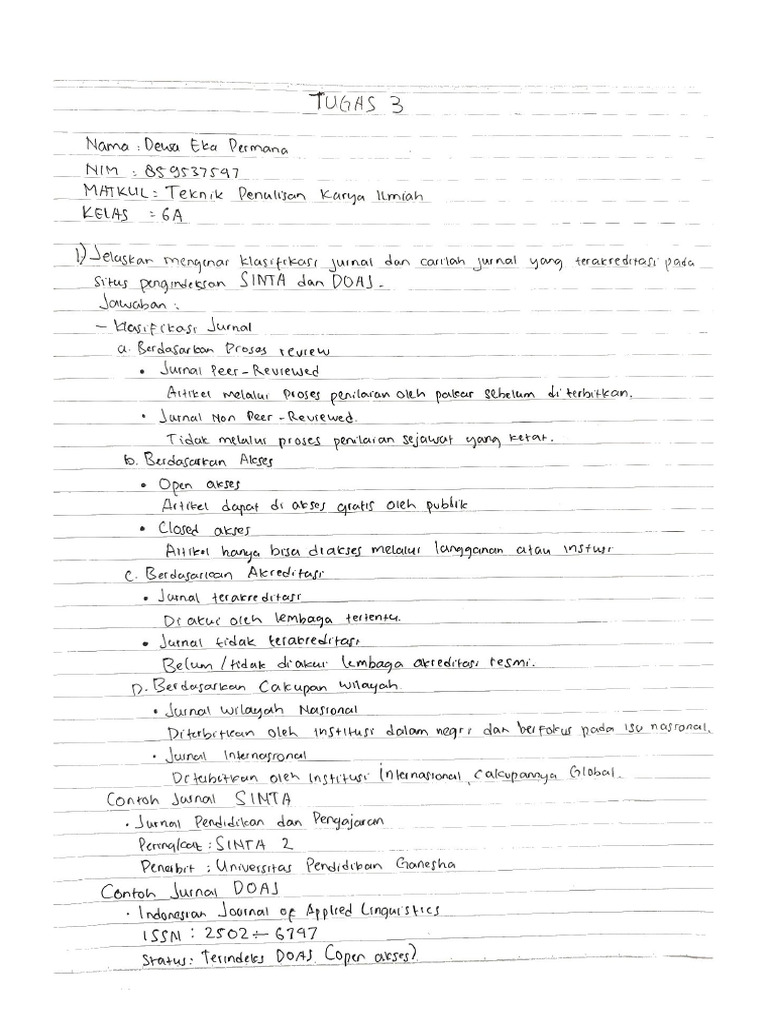 TUGAS 3
Nama : Dewa Eka Permana
NIM : 859537597
MATKUL : Teknik Penulisan Karya Ilmiah
KELAS : 6A
1) Jelaskan mengenai klasifikasi jurnal dan carilah jurnal yang terakreditasi pada
situs pengindeksan SINTA dan DOAJ.
Jawaban :
- Klasifikasi Jurnal
a. Berdasarkan Proses review
• Jurnal Peer-Reviewed
Artikel melalui proses penilaian oleh pakar sebelum diterbitkan.
• Jurnal Non Peer-Reviewed.
Tidak melalui proses penilaian sejawat yang ketat.
b. Berdasarkan Akses
• Open akses
Artikel dapat di akses gratis oleh publik
• Closed akses
Artikel hanya bisa diakses melalui langganan atau instusi
C. Berdasarkan Akreditasi
• Jurnal terakreditasi
Di akui oleh lembaga tertentu.
• Jurnal tidak terakreditasi
Belum / tidak diakui lembaga akreditasi resmi.
D. Berdasarkan Cakupan wilayah
• Jurnal wilayah Nasional
Diterbitkan oleh institusi dalam negri dan berfokus pada isu nasional.
• Jurnal Internasional
Diterbitkan oleh Institusi Internasional, Cakupannya Global.
Contoh Jurnal SINTA
• Jurnal Pendidikan dan Pengajaran
Peringkat : SINTA 2
Penerbit : Universitas Pendidikan Ganesha
Contoh Jurnal DOAJ
• Indonesian Journal of Applied Linguistics
ISSN : 2502 - 6747
Status : Terindeks DOAJ (open akses)